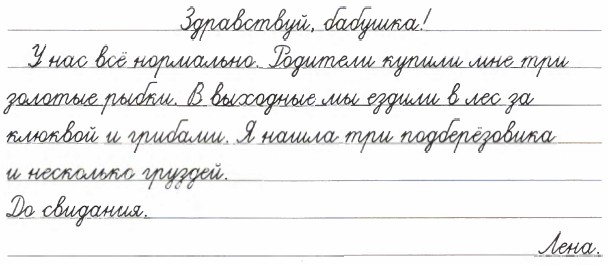 Здравствуй, бабушка!
У нас всё нормально. Родители купили мне три
золотые рыбки. В выходные мы ездили в лес за
клюквой и грибами. Я нашла три подберёзовика
и несколько груздей.
До свидания.
Лена.